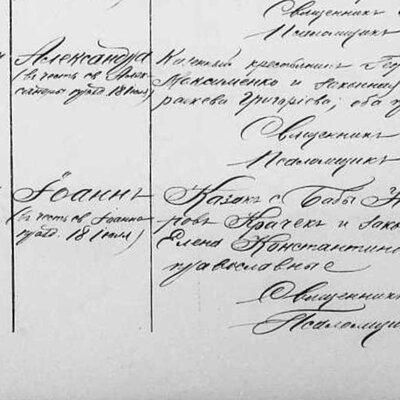 Священникъ
Псаломщикъ
Александра
(въ честь св. Алек-
сандры празд. 18 Іюля)
Казенный крестьянинъ с. Гер
Максименко и законная
Григоріева; оба п
Священникъ
Псаломщикъ
Іоаннъ
(въ честь св. Іоанна
празд. 18 Іюля)
Казакъ с. Бабы
ровъ Крачекъ и зако
Елена Константино
православные
Священникъ
Псаломщикъ